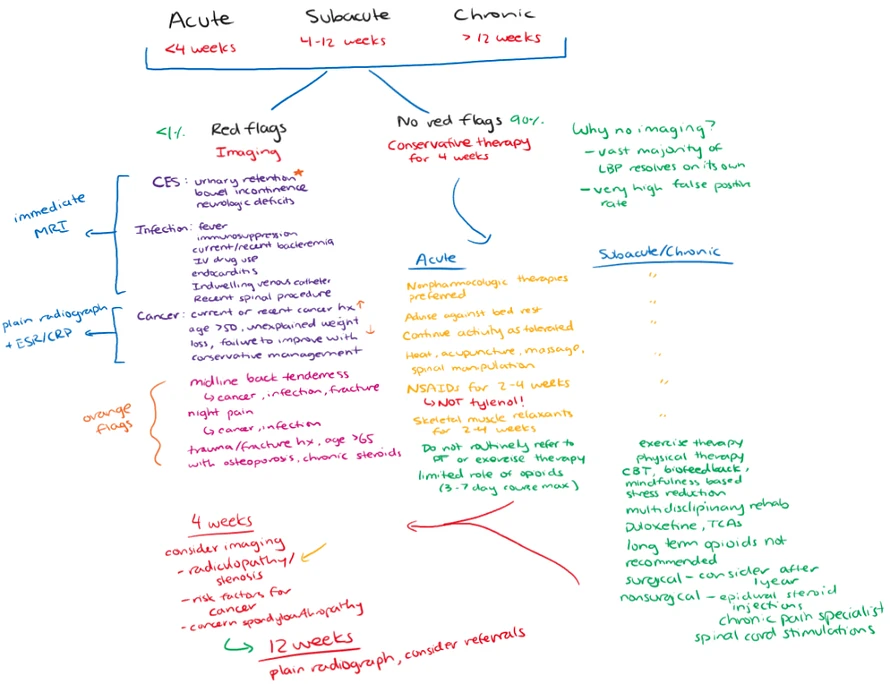 Acute Subacute Chronic
<4 weeks 4-12 weeks > 12 weeks
<1% Red flags
Imaging
No red flags 90%
Conservative therapy
for 4 weeks
Why no imaging?
- vast majority of
LBP resolves on its own
- very high false positive
rate
immediate
MRI
CES: urinary retention*
bowel incontinence
neurologic deficits
Infection: fever
immunosuppression
current/recent bacteremia
IV drug use
endocarditis
Indwelling venous catheter
Recent spinal procedure
plain radiograph
+ ESR/CRP
Cancer: current or recent cancer hx ↑
age >50, unexplained weight
loss, failure to improve with ↓
conservative management
orange
flags
midline back tenderness
↳ cancer, infection, fracture
night pain
↳ cancer, infection
trauma/fracture hx, age >65
with osteoporosis, chronic steroids
Acute
Nonpharmacologic therapies
preferred
Advise against bed rest
Continue activity as tolerated
Heat, acupuncture, massage,
spinal manipulation
NSAIDs for 2-4 weeks
↳ NOT tylenol!
Skeletal muscle relaxants
for 2-4 weeks
Do not routinely refer to
PT or exercise therapy
limited role of opioids
(3-7 day course max)
Subacute/Chronic
"
"
"
"
"
"
exercise therapy
physical therapy
CBT, biofeedback,
mindfulness based
stress reduction
multidisciplinary rehab
Duloxetine, TCAs
long term opioids not
recommended
surgical - consider after
1 year
nonsurgical - epidural steroid
injections
chronic pain specialist
spinal cord stimulations
4 weeks
consider imaging
- radiculopathy/
stenosis
- risk factors for
cancer
- concern spondyloarthropathy
12 weeks
plain radiograph, consider referrals